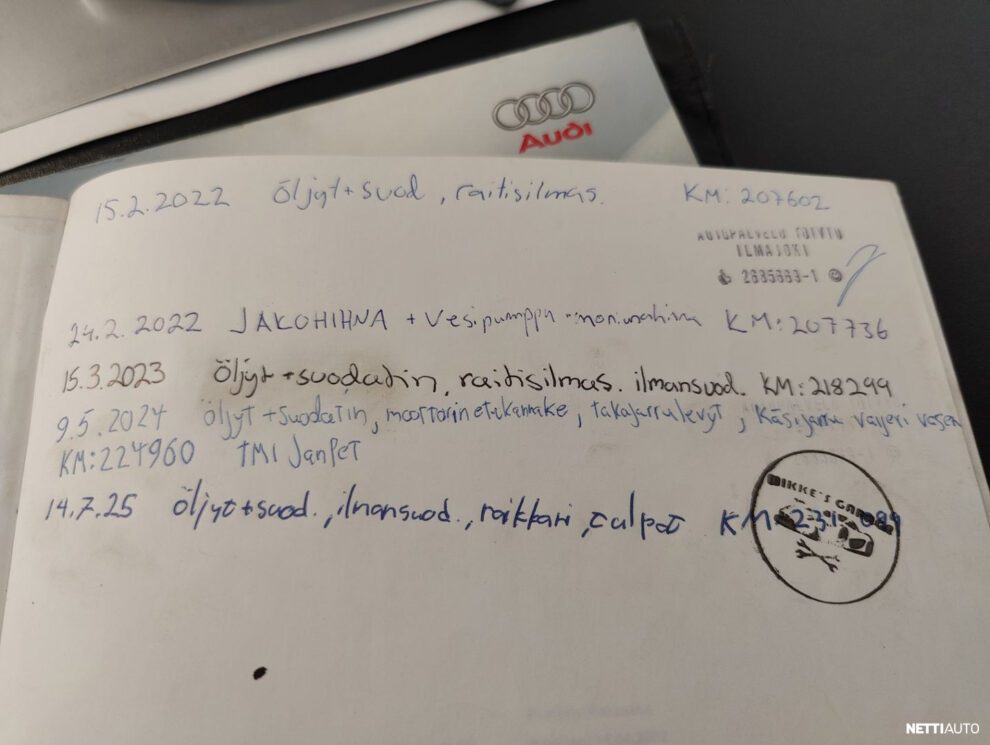 Audi
15.2.2022 Öljyt + suod, raitisilmas. KM: 207602
ILMAJOKI
2635693-1
24.2.2022 JAKOHIHNA + Vesipumppu KM: 207736
15.3.2023 Öljyt + suodatin, raitisilmas. ilmansuod. KM: 218299
9.5.2024 Öljyt + suodatin, moottorinetukannake, takajarrulevyt, Käsijarru vayeri vasen
KM: 224960 TMI JanPet
14.7.25 Öljyt + suod., ilmansuod., raikkari, tulpat KM
MIKKE'S GARAGE
NETTIAUTO